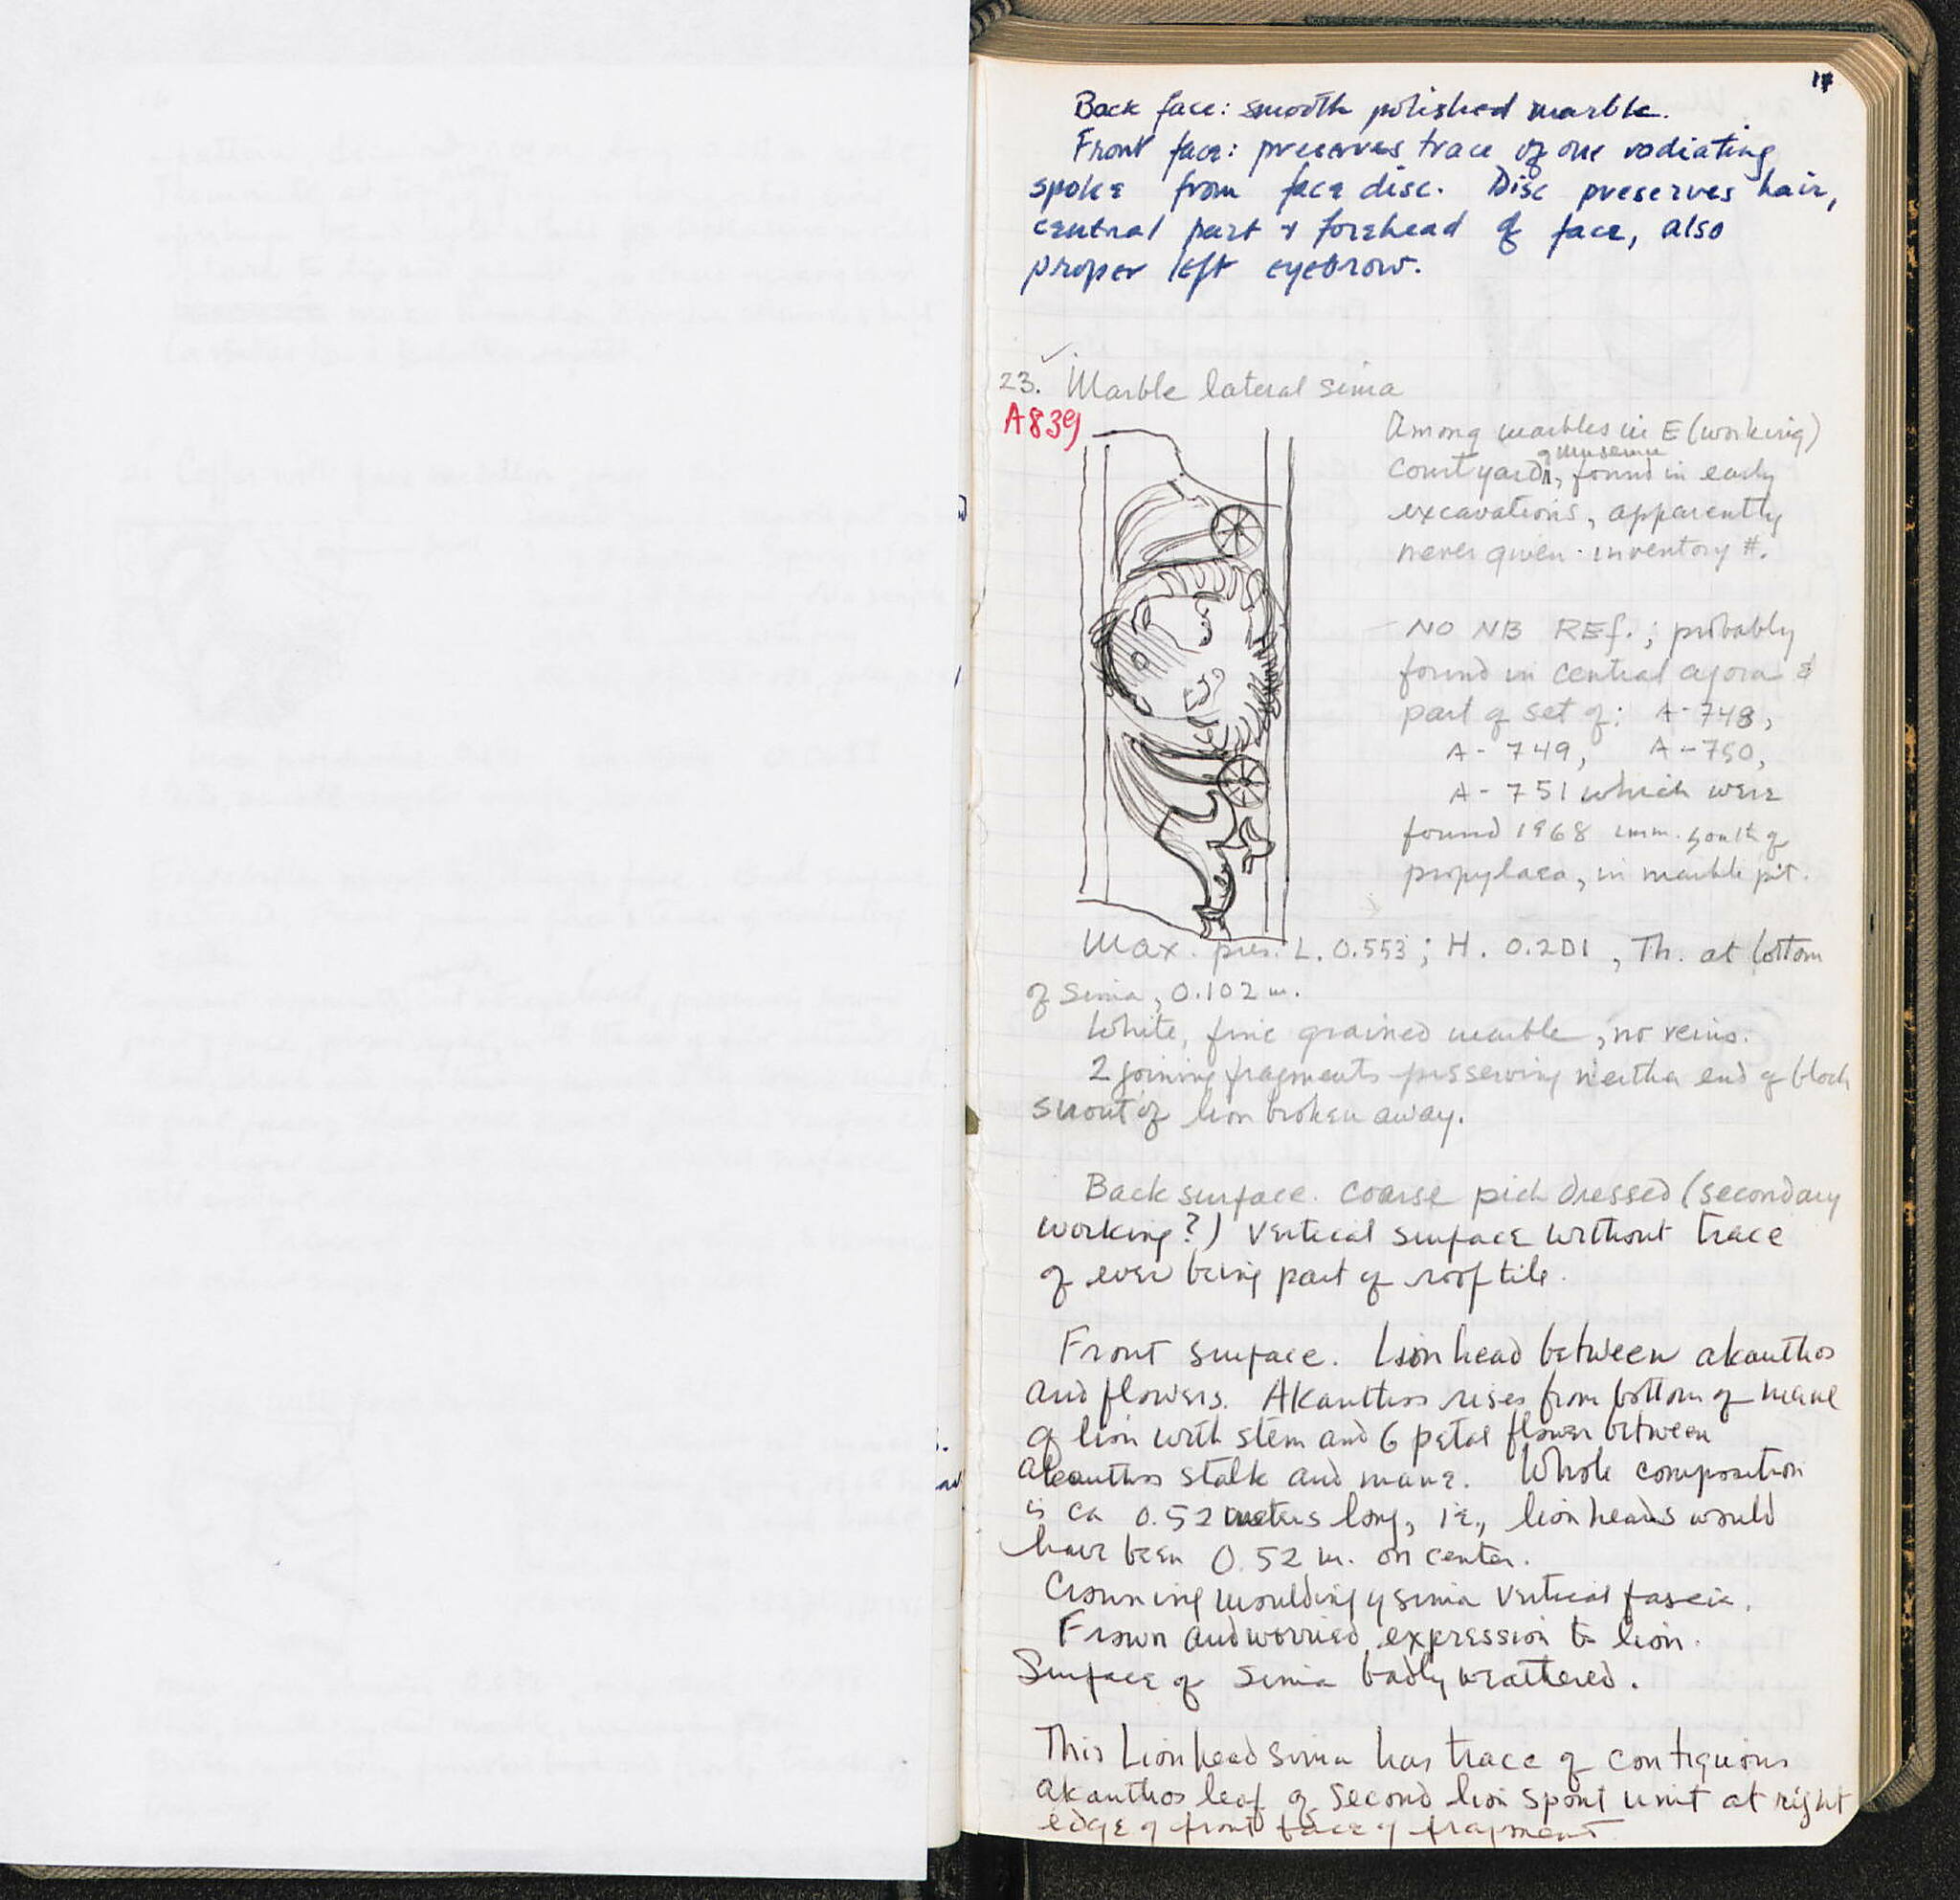 17
Back face: smooth polished marble.
Front face: preserves trace of one radiating
spoke from face disc. Disc preserves hair,
central part & forehead of face, also
proper left eyebrow.
23. Marble lateral sima
A839
Among marbles in E (working)
of museum
courtyard, found in early
excavations, apparently
never given inventory #.
NO NB REf.; probably
found in central agora &
part of set of: A-748,
A-749, A-750,
A-751 which were
found 1968 imm. south of
propylaea, in marble pit.
Max. pres. L. 0.553; H. 0.201, Th. at bottom
of sima, 0.102 m.
White, fine grained marble, no veins.
2 joining fragments preserving neither end of block
snout of lion broken away.
Back surface. Coarse pick dressed (secondary
working?) vertical surface without trace
of ever being part of roof tile.
Front surface. Lion head between akanthos
and flowers. Akanthos rises from bottom of mane
of lion with stem and 6 petal flower between
akanthos stalk and mane. Whole composition
is ca 0.52 meters long, i.e., lion heads would
have been 0.52 m. on center.
Crowning moulding of sima vertical fascia.
Frown and worried expression to lion.
Surface of sima badly weathered.
This Lionhead sima has trace of contiguous
akanthos leaf of second lion spout unit at right
edge of front face of fragment